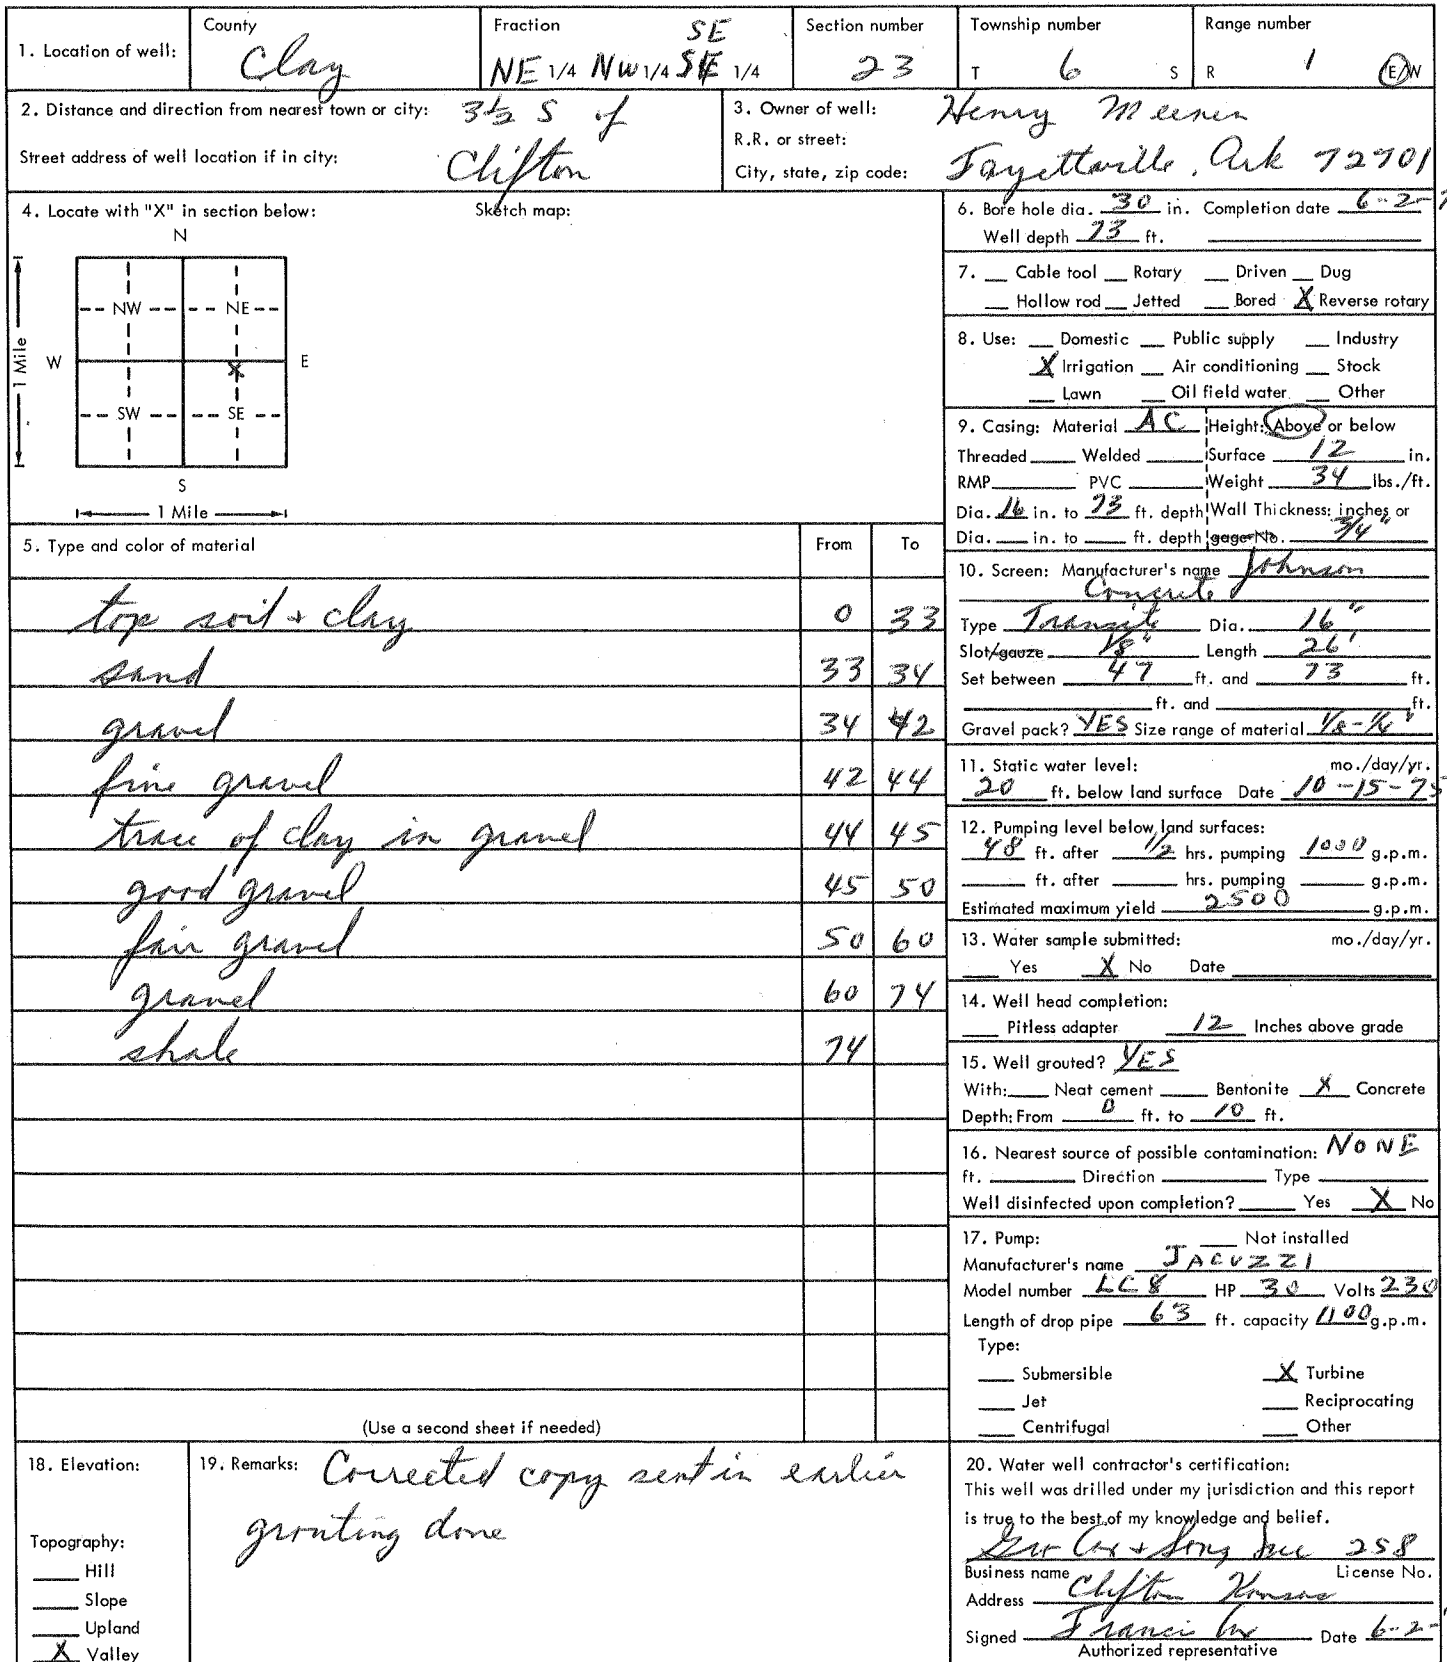 1. Location of well: County Clay Fraction SE NE 1/4 NW 1/4 1/4 Section number 23 Township number T 6 S Range number R 1 E/W
2. Distance and direction from nearest town or city: 3 1/2 S of Clifton
Street address of well location if in city:
3. Owner of well: Henry Meenen
R.R. or street:
City, state, zip code: Fayetteville, Ark 72701
4. Locate with "X" in section below: Sketch map:
N
NW NE
W X E
SW SE
S
1 Mile
1 Mile
5. Type and color of material From To
top soil + clay 0 33
sand 33 34
gravel 34 42
fine gravel 42 44
trace of clay in gravel 44 45
good gravel 45 50
fair gravel 50 60
gravel 60 74
shale 74
(Use a second sheet if needed)
6. Bore hole dia. 30 in. Completion date 6-2-7
Well depth 73 ft.
7. __ Cable tool __ Rotary __ Driven __ Dug
__ Hollow rod __ Jetted __ Bored X Reverse rotary
8. Use: __ Domestic __ Public supply __ Industry
X Irrigation __ Air conditioning __ Stock
__ Lawn __ Oil field water __ Other
9. Casing: Material AC Height: Above or below
Threaded ___ Welded ___ Surface 12 in.
RMP ___ PVC ___ Weight 34 lbs./ft.
Dia. 16 in. to 73 ft. depth Wall Thickness: inches or
Dia. ___ in. to ___ ft. depth gage No. 3/4"
10. Screen: Manufacturer's name Johnson
Concrete
Type Transite Dia. 16"
Slot/gauze 1/8" Length 26'
Set between 47 ft. and 73 ft.
___ ft. and ___ ft.
Gravel pack? YES Size range of material 1/8-1/4"
11. Static water level: mo./day/yr.
20 ft. below land surface Date 10-15-75
12. Pumping level below land surfaces:
48 ft. after 1/2 hrs. pumping 1000 g.p.m.
___ ft. after ___ hrs. pumping ___ g.p.m.
Estimated maximum yield 2500 g.p.m.
13. Water sample submitted: mo./day/yr.
___ Yes X No Date ___
14. Well head completion:
___ Pitless adapter 12 Inches above grade
15. Well grouted? YES
With: ___ Neat cement ___ Bentonite X Concrete
Depth: From 0 ft. to 10 ft.
16. Nearest source of possible contamination: NONE
ft. ___ Direction ___ Type ___
Well disinfected upon completion? ___ Yes X No
17. Pump: ___ Not installed
Manufacturer's name JACUZZI
Model number LC8 HP 30 Volts 230
Length of drop pipe 63 ft. capacity 1100 g.p.m.
Type:
___ Submersible X Turbine
___ Jet ___ Reciprocating
___ Centrifugal ___ Other
18. Elevation:
Topography:
___ Hill
___ Slope
___ Upland
X Valley
19. Remarks: Corrected copy sent in earlier
grouting done
20. Water well contractor's certification:
This well was drilled under my jurisdiction and this report
is true to the best of my knowledge and belief.
Geo Cox + Sons Inc 258
Business name License No.
Address Clifton Kansas
Signed Francis Cox Date 6-2-
Authorized representative